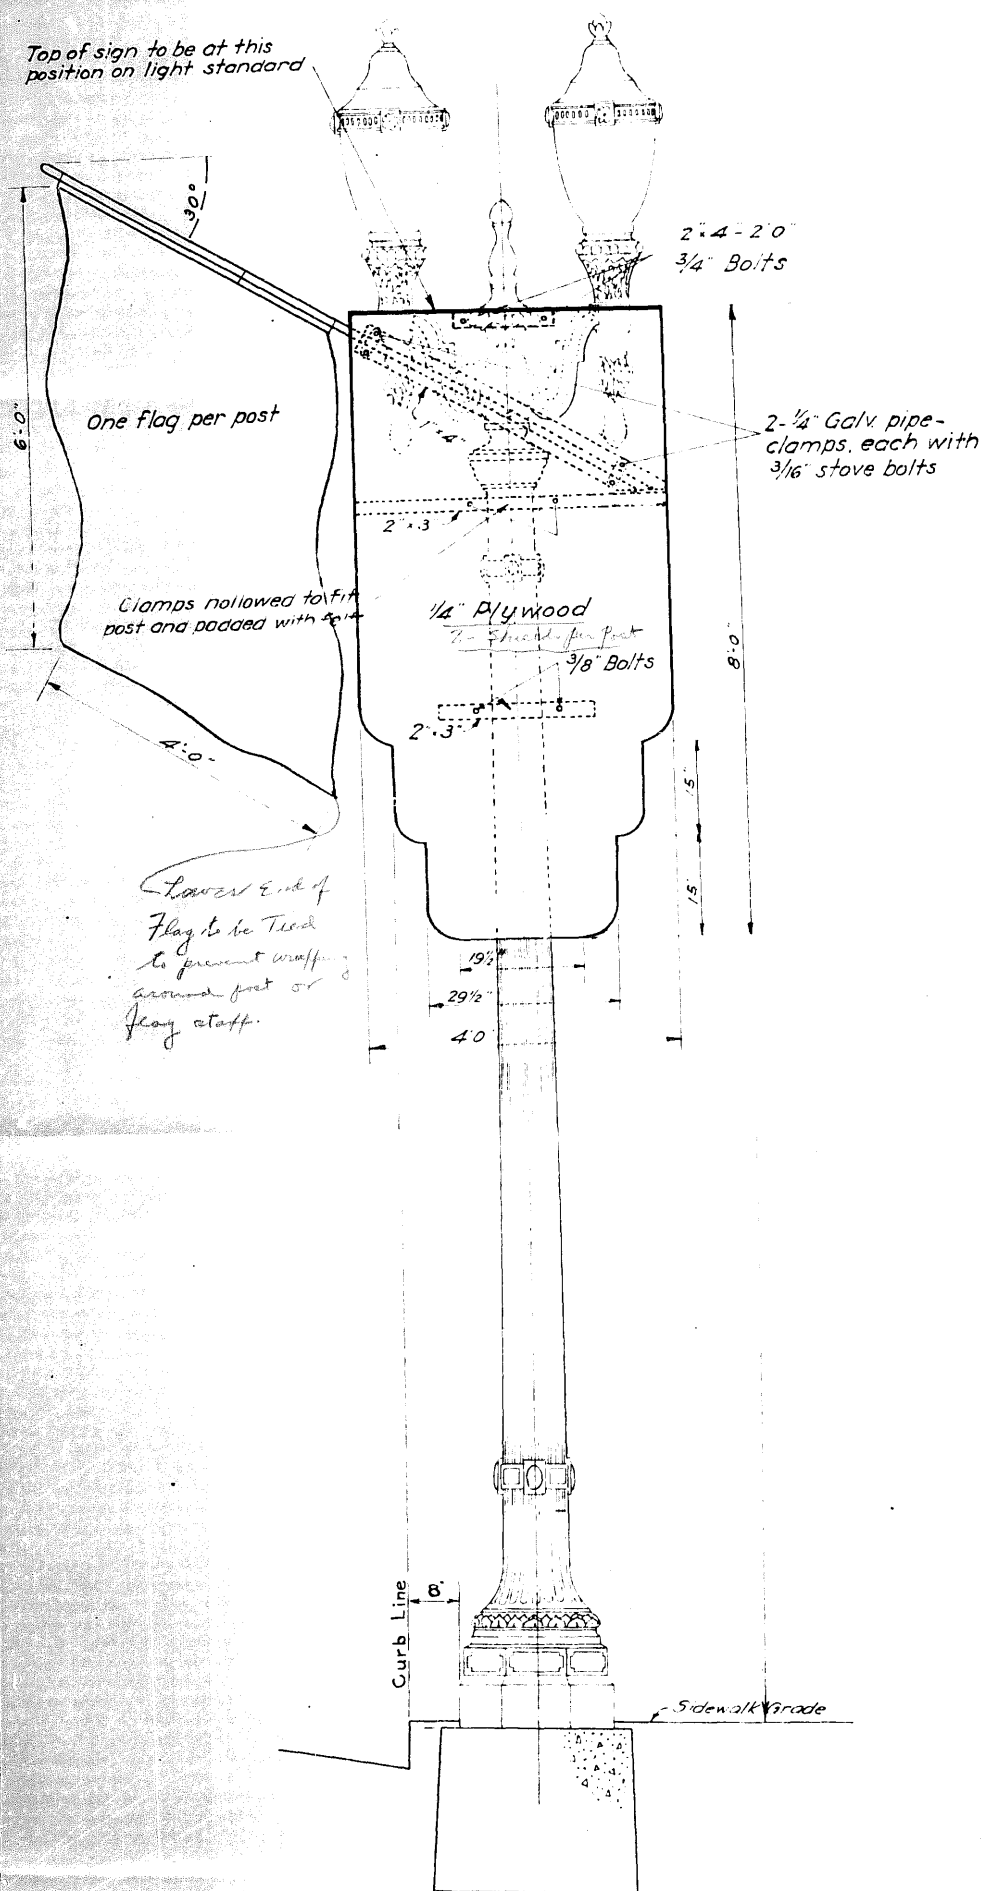 Top of sign to be at this
position on light standard
30°
2"x4-2'0"
3/4" Bolts
6'-0"
One flag per post
1"x4"
2-1/4" Galv. pipe-
clamps, each with
3/16" stove bolts
2"x3
Clamps hollowed to fit
post and padded with felt
1/4" Plywood
2- Shields per Post
3/8" Bolts
8'-0"
2"x3"
4'-0"
15"
15"
Lower End of
Flag to be Tied
to prevent wrapping
around post or
flag staff.
19 1/2"
29 1/2"
4'0"
Curb Line
8"
Sidewalk Grade